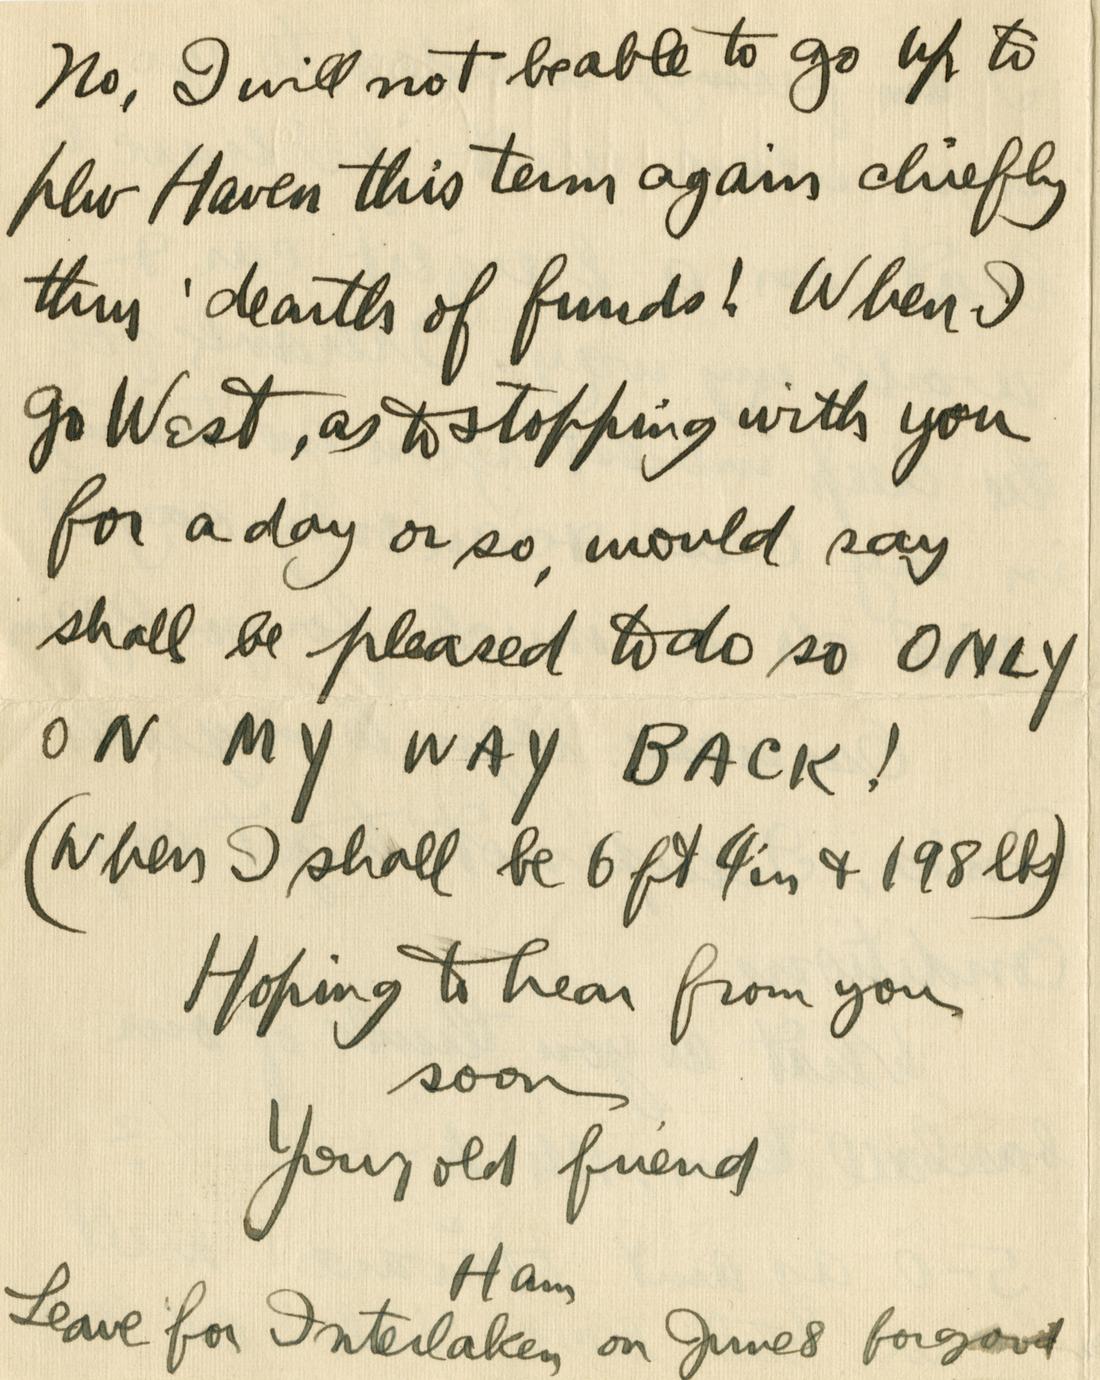 No, I will not be able to go up to
New Haven this term again chiefly
thru' dearth of funds! When I
go West, as to stopping with you
for a day or so, would say
shall be pleased to do so ONLY
ON MY WAY BACK!
(When I shall be 6 ft 4in & 198 lbs)
Hoping to hear from you
soon
Your old friend
Ham
Leave for Interlaken on June 8 for good